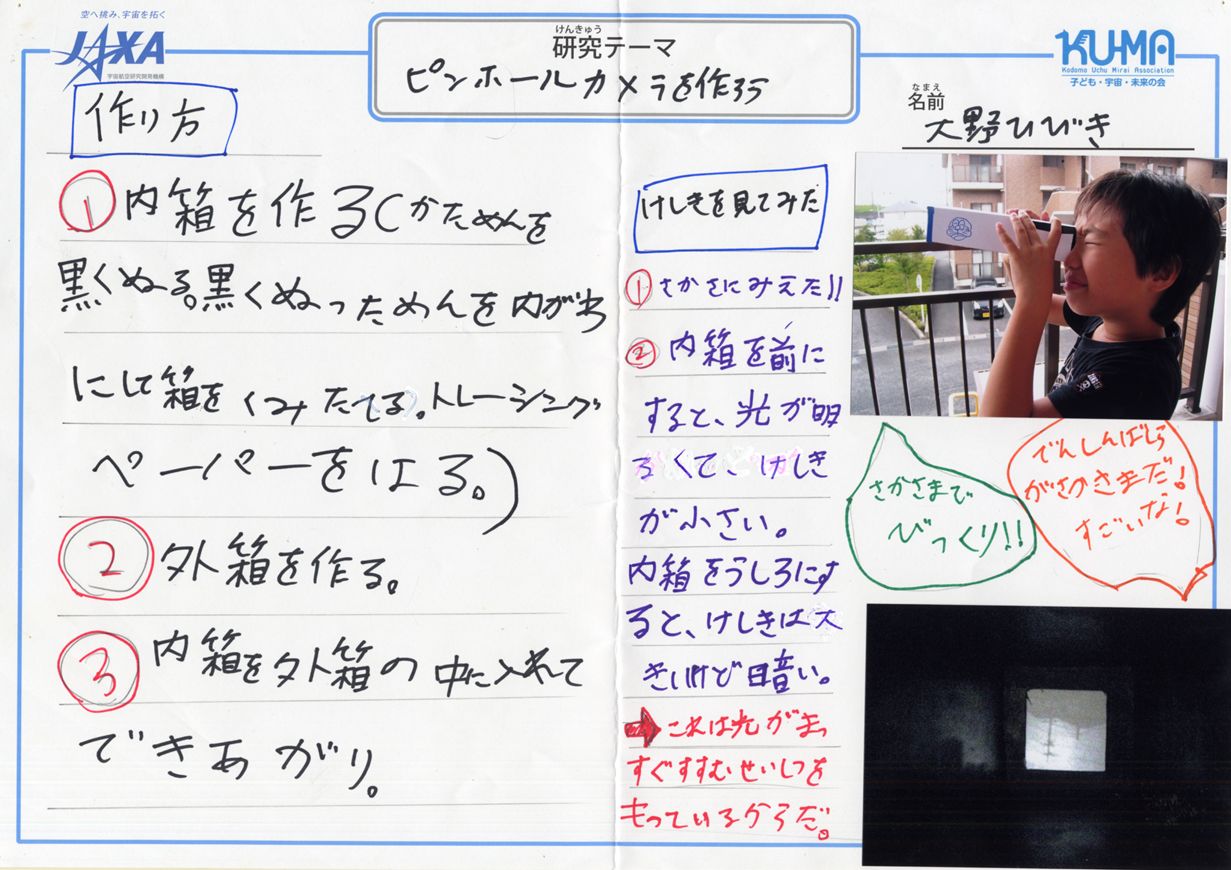 空へ挑み、宇宙を拓く
JAXA
宇宙航空研究開発機構
けんきゅう
研究テーマ
ピンホールカメラを作ろう
KU-MA
Kodomo Uchu Mirai Association
子ども・宇宙・未来の会
なまえ
名前
大野ひびき
作り方
① 内箱を作る(かためんを
黒くぬる。黒くぬっためんを内がわ
にして箱をくみたてる。トレーシング
ペーパーをはる。)
② 外箱を作る。
③ 内箱を外箱の中に入れて
できあがり。
けしきを見てみた
① さかさにみえた!!
② 内箱を前に
すると、光が明
るくて、けしき
が小さい。
内箱をうしろにす
ると、けしきは大
きいけど暗い。
➡これは光がまっ
すぐすすむせいしつを
もっているからだ。
さかさまで
びっくり!!
でんしんばしら
がさかさまだ!
すごいな!